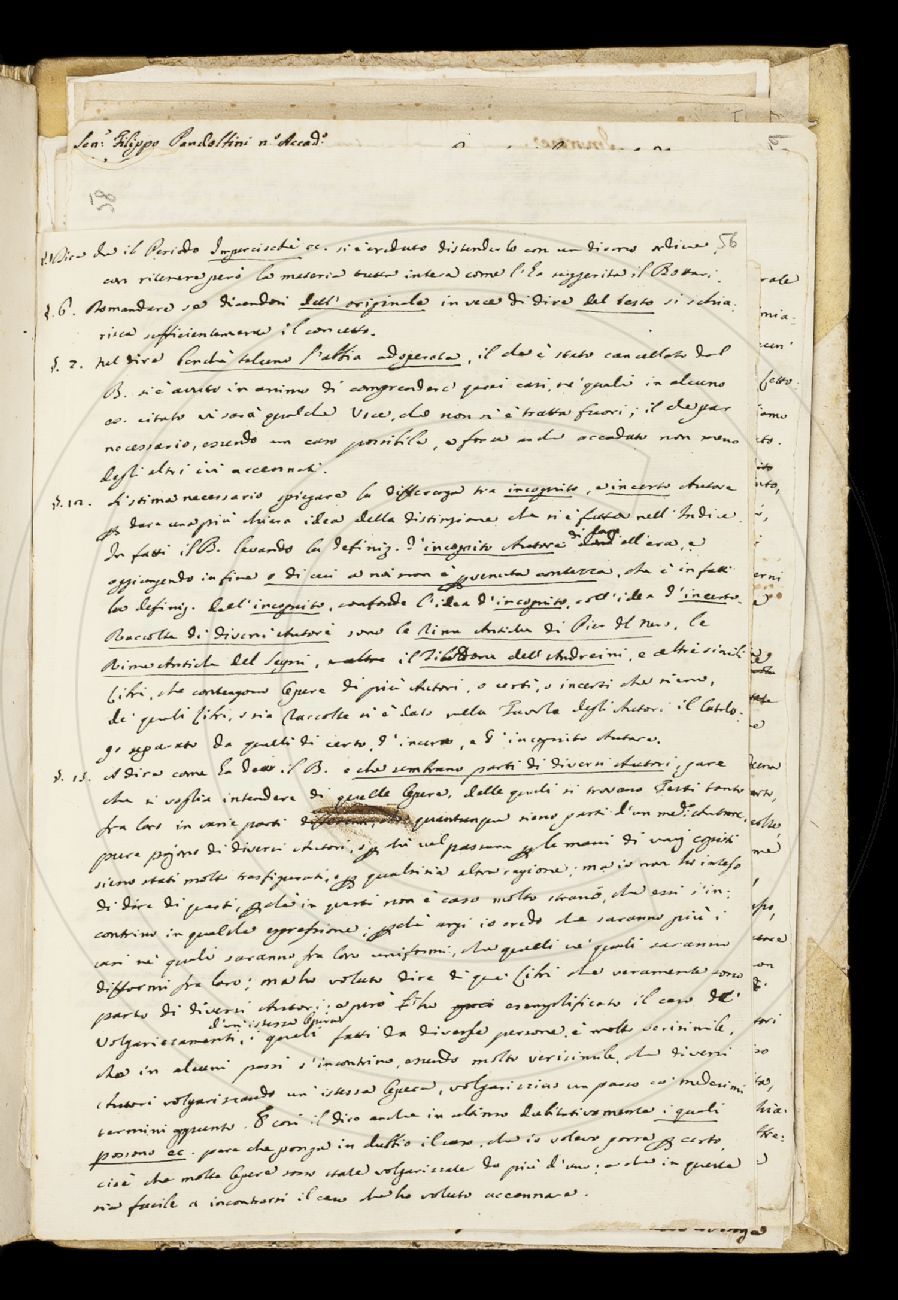 Sen.r Filippo Pandolfini n.o Accad.o
56
che il Periodo Imperciochè ec. si è creduto distenderlo con un diverso ordine
con ritenere però la materia tutta intera come l'ha suggerita il Bottari.
§. 6. Domandare se dicendosi dell'originale in vece di dire del testo si schia-
risca sufficientemente il concetto.
§. 7. Nel dire benchè taluno l'abbia adoperata, il che è stato cancellato dal
B. si è avuto in animo di comprendere quei casi, ne' quali in alcuno
es. citato vi sarà qualche Voce, che non si è tratta fuori; il che par
necessario, essendo un caso possibile, e forse anche accaduto non meno
degli altri ivi accennati.
§. 12. Si stima necessario spiegare la differenza tra incognito, e incerto Autore
per dare una più chiara idea della distinzione che si è fatta nell'Indice.
In fatti il B. levando la definiz. d'incognito Autore di ell'era, e
aggiungendo in fine o di cui a noi non è pervenuta contezza, che è in fatti
la definiz. dell'incognito, confonde l'idea d'incognito, coll'idea d'incerto.
Raccolte di diversi Autori sono le Rime Antiche di Pier del Nero, le
Rime Antiche del Segni, e altre il Zibaldone dell'Andreini, e altri simili
Libri, che contengono Opere di più Autori, o certi, o incerti che sieno,
de' quali Libri, o sia Raccolte si è dato nella Tavola degli Autori il luo-
go separato da quelli di certo, d'incerto, e d'incognito Autore.
§. 13. A dire come ha detto il B. e che sembrano parti di diversi Autori, pare
che si voglia intendere di quelle Opere, delle quali si trovano Testi tanto
fra loro in varie parti quantunque sieno parti d'un med.o Autore,
pure pajono di diversi Autori, o perchè nel passare per le mani di varj copisti
sieno stati molto trasfigurati, o per qualsisia altra ragione; ma io non ho inteso
di dire di questi, perchè in questi non è caso molto strano, che essi s'in-
contrino in qualche espressione; perchè anzi io credo che saranno più i
casi ne' quali saranno fra loro uniformi, che quelli ne' quali saranno
difformi fra loro; ma ho voluto dire di quei Libri che veramente sono
parto di diversi Autori; e però ho esemplificato il caso de'
d'un'istessa Opera
Volgarizzamenti, i quali fatti da diverse persone, è molto verisimile,
che in alcuni passi s'incontrino, essendo molto verisimile, che diversi
Autori volgarizzando un'istessa Opera, volgarizzino un passo co' medesimi
termini appunto. E così il dire anche in ultimo dubitativamente i quali
possono ec. pare che ponga in dubbio il caso, che io volevo porre per certo,
cioè che molte Opere sono state volgarizzate da più d'uno; e che in queste
sia facile a incontrarsi il caso che ho voluto accennare.